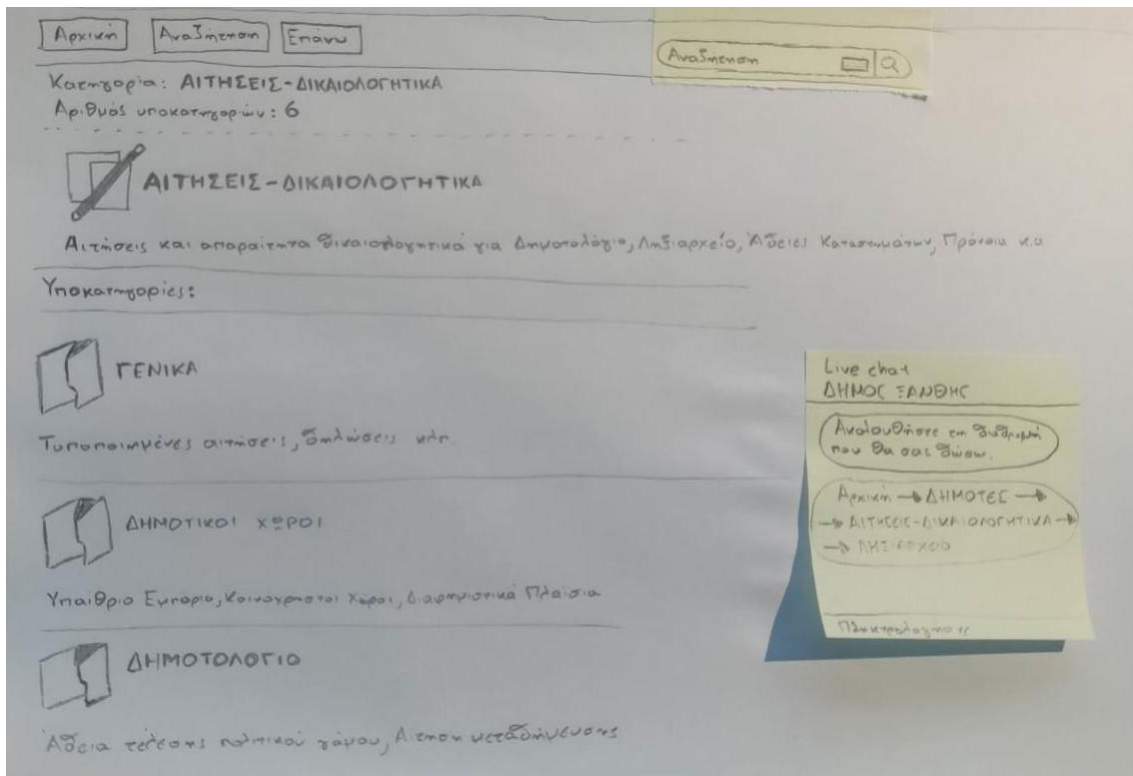 Αρχική Αναζήτηση Επάνω
Αναζήτηση
Κατηγορία: ΑΙΤΗΣΕΙΣ-ΔΙΚΑΙΟΛΟΓΗΤΙΚΑ
Αριθμός υποκατηγοριών: 6
ΑΙΤΗΣΕΙΣ-ΔΙΚΑΙΟΛΟΓΗΤΙΚΑ
Αιτήσεις και απαραίτητα δικαιολογητικά για Δημοτολόγιο, Ληξιαρχείο, Άδειες Καταστημάτων, Πρόνοια κ.α
Υποκατηγορίες:
ΓΕΝΙΚΑ
Τυποποιημένες αιτήσεις, δηλώσεις κλπ
ΔΗΜΟΤΙΚΟΙ ΧΩΡΟΙ
Υπαίθριο Εμπόριο, Κοινόχρηστοι Χώροι, Διαφημιστικά Πλαίσια
ΔΗΜΟΤΟΛΟΓΙΟ
Άδεια τέλεσης πολιτικού γάμου, Αίτηση μεταδημότευσης
Live chat
ΔΗΜΟΣ ΞΑΝΘΗΣ
Ακολουθήστε τη διαδρομή
που θα σας δώσω.
Αρχική → ΔΗΜΟΤΕΣ →
→ ΑΙΤΗΣΕΙΣ-ΔΙΚΑΙΟΛΟΓΗΤΙΚΑ →
→ ΛΗΞΙΑΡΧΕΙΟ
Πληκτρολογήστε